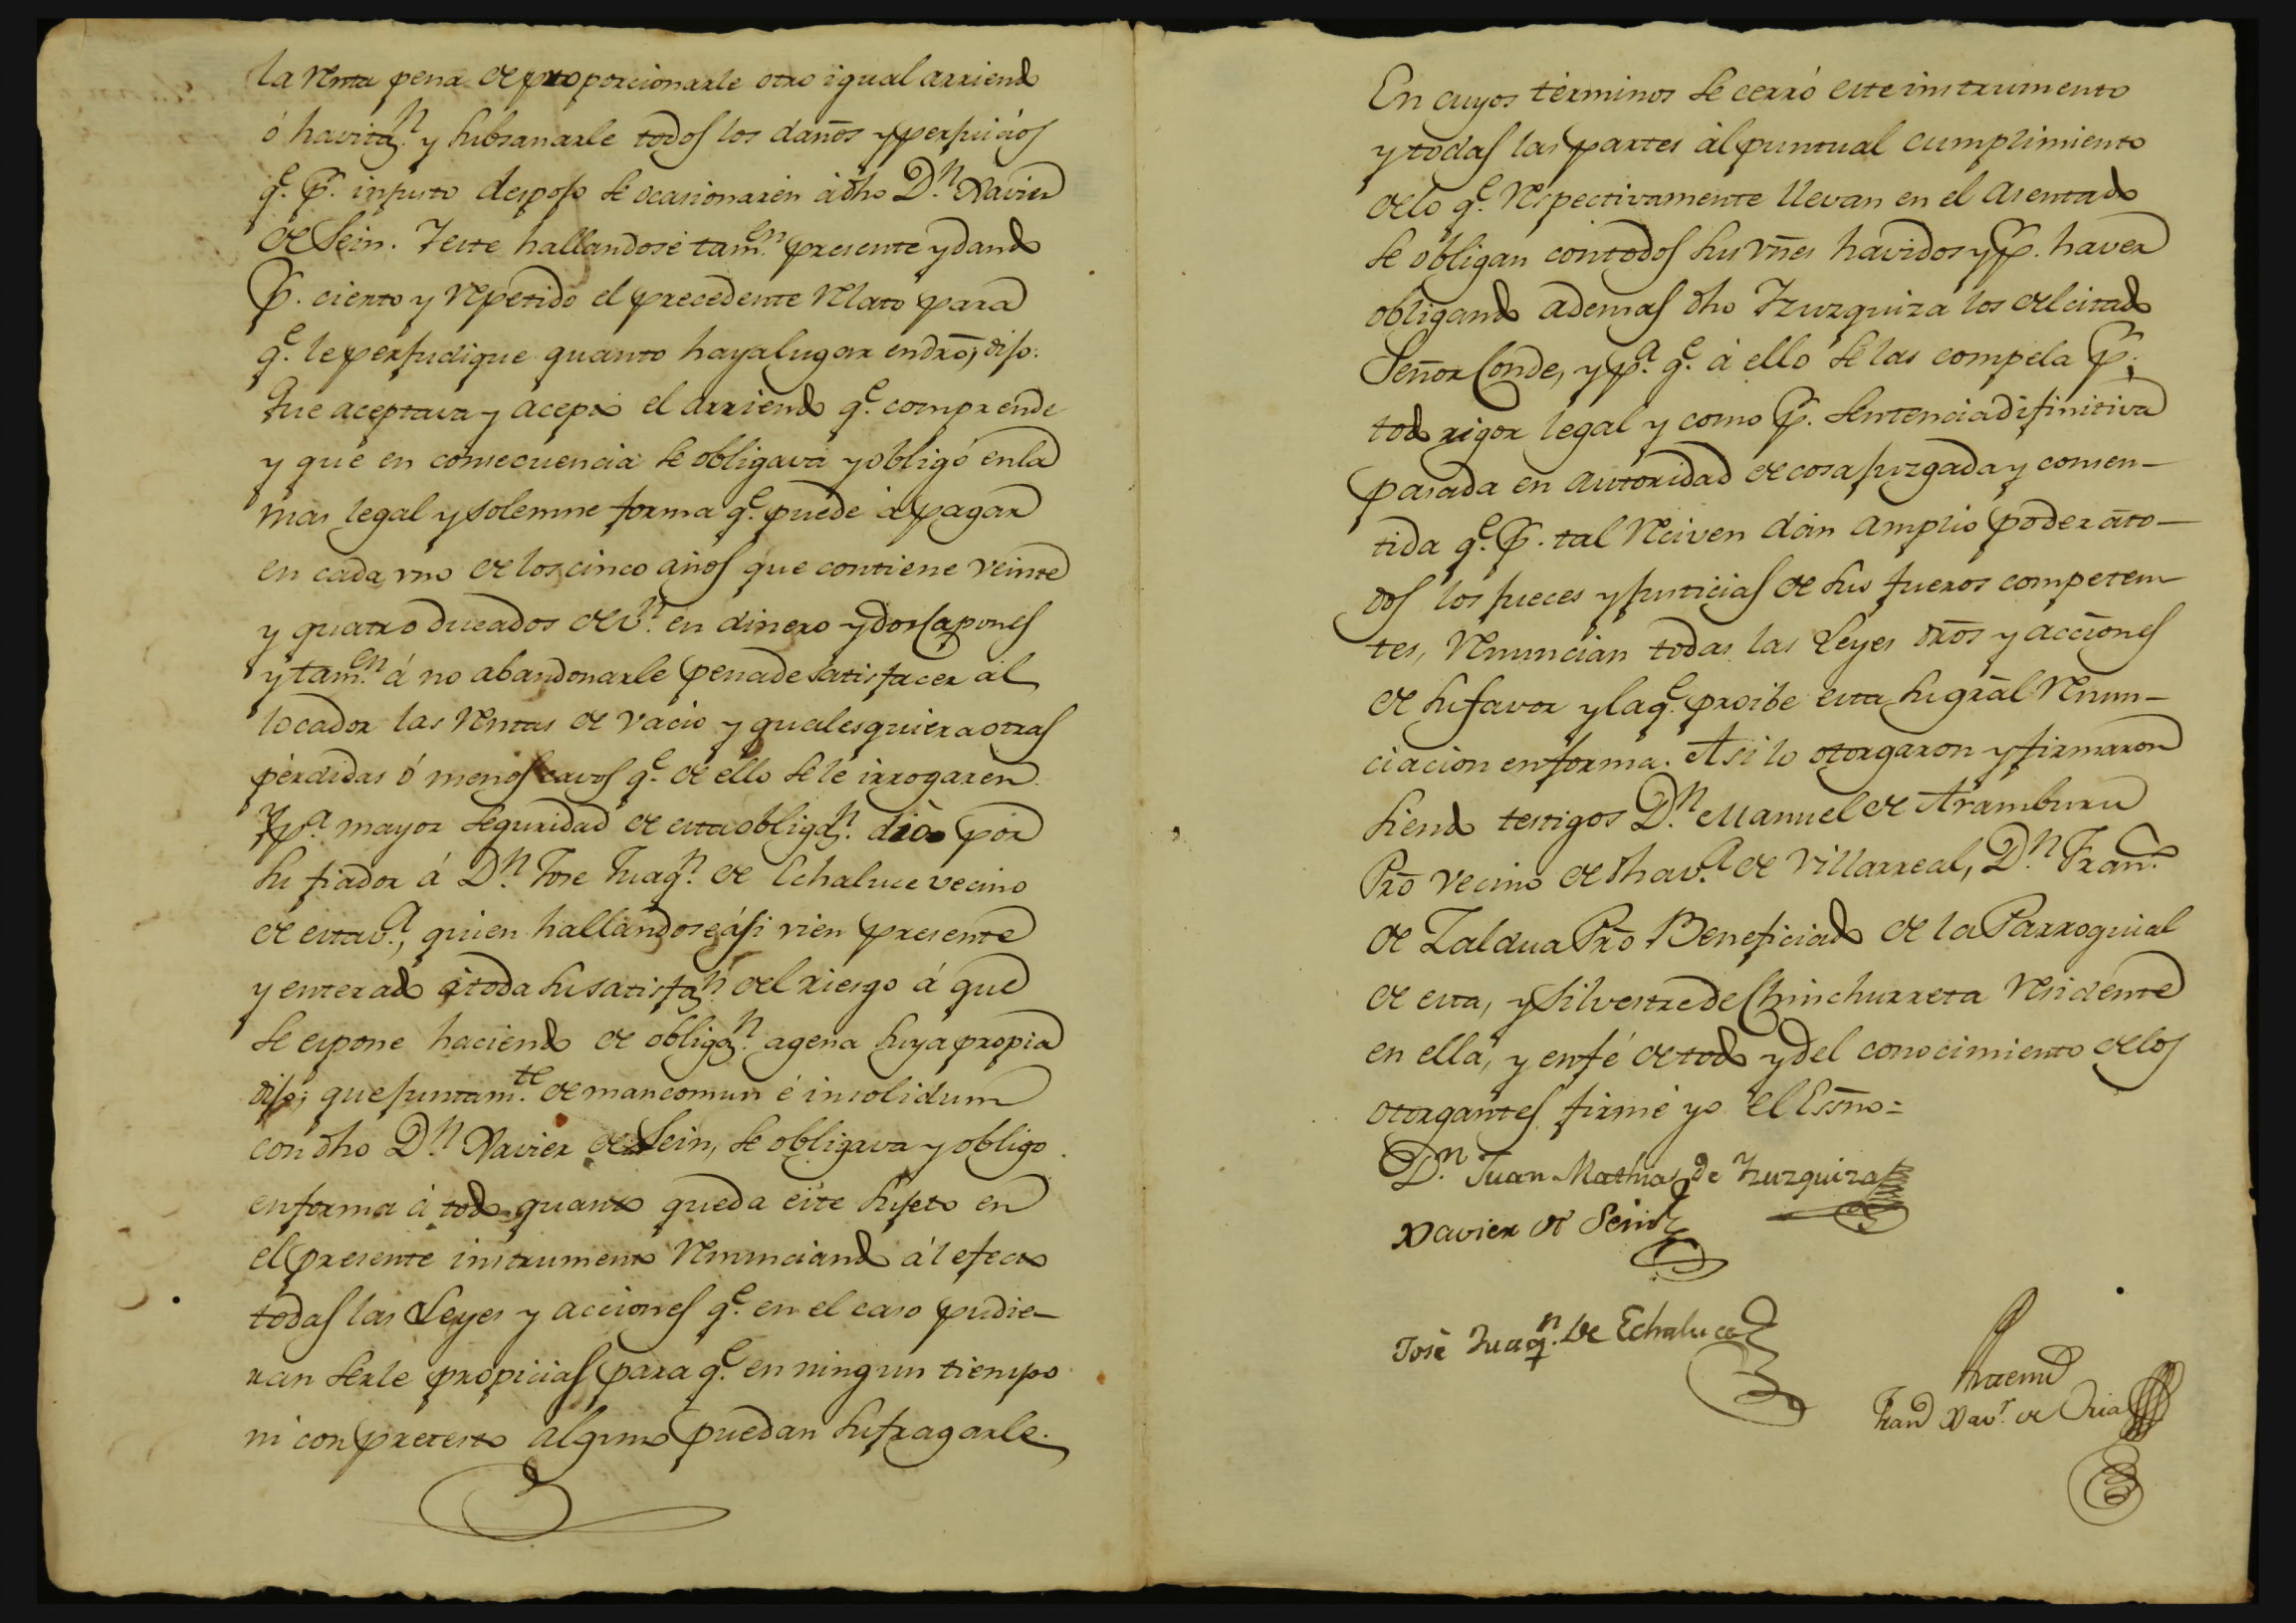 la renta pena de proporcionarle otro igual arriendo
ó havitaz.n y subsanarle todos los daños y perjuicios
q.e p.r injusto despojo se ocasionaren à dho D.n Xavier
de Sein. Y este hallandose tam.en presente y dando
p.r cierto y repetido el precedente relato para
q.e le perjudique quanto haya lugar en dro, dijo:
Que aceptava y aceptó el arriendo q.e comprende
y que en consecuencia se obligava y obligó en la
mas legal y solemne forma q.e puede à pagar
en cada vno de los cinco años que contiene veinte
y quatro ducados de v.n en dinero y dos capones
y tam.en á no abandonarle pena de satisfacer al
locador las rentas de vacio y qualesquiera otras
pèrdidas ó menoscavos q.e de ello se le irrogaren.
Y p.a mayor seguridad de esta obligaz.n dió por
su fiador á D.n Jose Juaq.n de Echaluce vecino
de esta v.a, quien hallandose ási vien presente
y enterado à toda su satisfaz.n del riesgo á que
se espone haciendo de obligaz.n agena suya propia
dijo; que juntam.te de mancomun é insolidum
con dho D.n Xavier de Sein, se obligava y obligo
en forma à todo quanto queda este sujeto en
el presente instrumento renunciando ál efecto
todas las Leyes y acciones q.e en el caso pudie-
ran serle propicias para q.e en ningun tiempo
ni con pretesto alguno puedan sufragarle.
En cuyos términos se cerró este instrumento
y todas las partes àl puntual cumplimiento
de lo q.e respectivamente llevan en el asentado
se obligan con todos sus vnes havidos y p.r haver
obligando ademas dho Yzurquiza los del citado
Señor Conde, y p.a q.e à ello se las compela p.r
todo rigor legal y como p.r sentencia difinitiva
pasada en autoridad de cosa juzgada y consen-
tida q.e p.r tal reciven dán amplio poder a to-
dos los jueces y justicias de sus fueros competen-
tes, renuncian todas las Leyes dros y acciones
de su favor y la q.e proibe esta su gral renun-
ciacion en forma. Asi lo otorgaron y firmaron
siendo testigos D.n Manuel de Aramburu
Pro vecino de dha v.a de Villarreal, D.n Fran.co
de Zaldua Pro Beneficiado de la Parroquial
de esta, y Silvestre de Chinchurreta residente
en ella, y en fé de todo y del conocimiento de los
otorgantes firmé yo el Essno=
D.n Juan Mathias de Yzurquiza
Xavier de Sein
José Juaq.n de Echaluce
Antemi
Fran.co Xav.r de